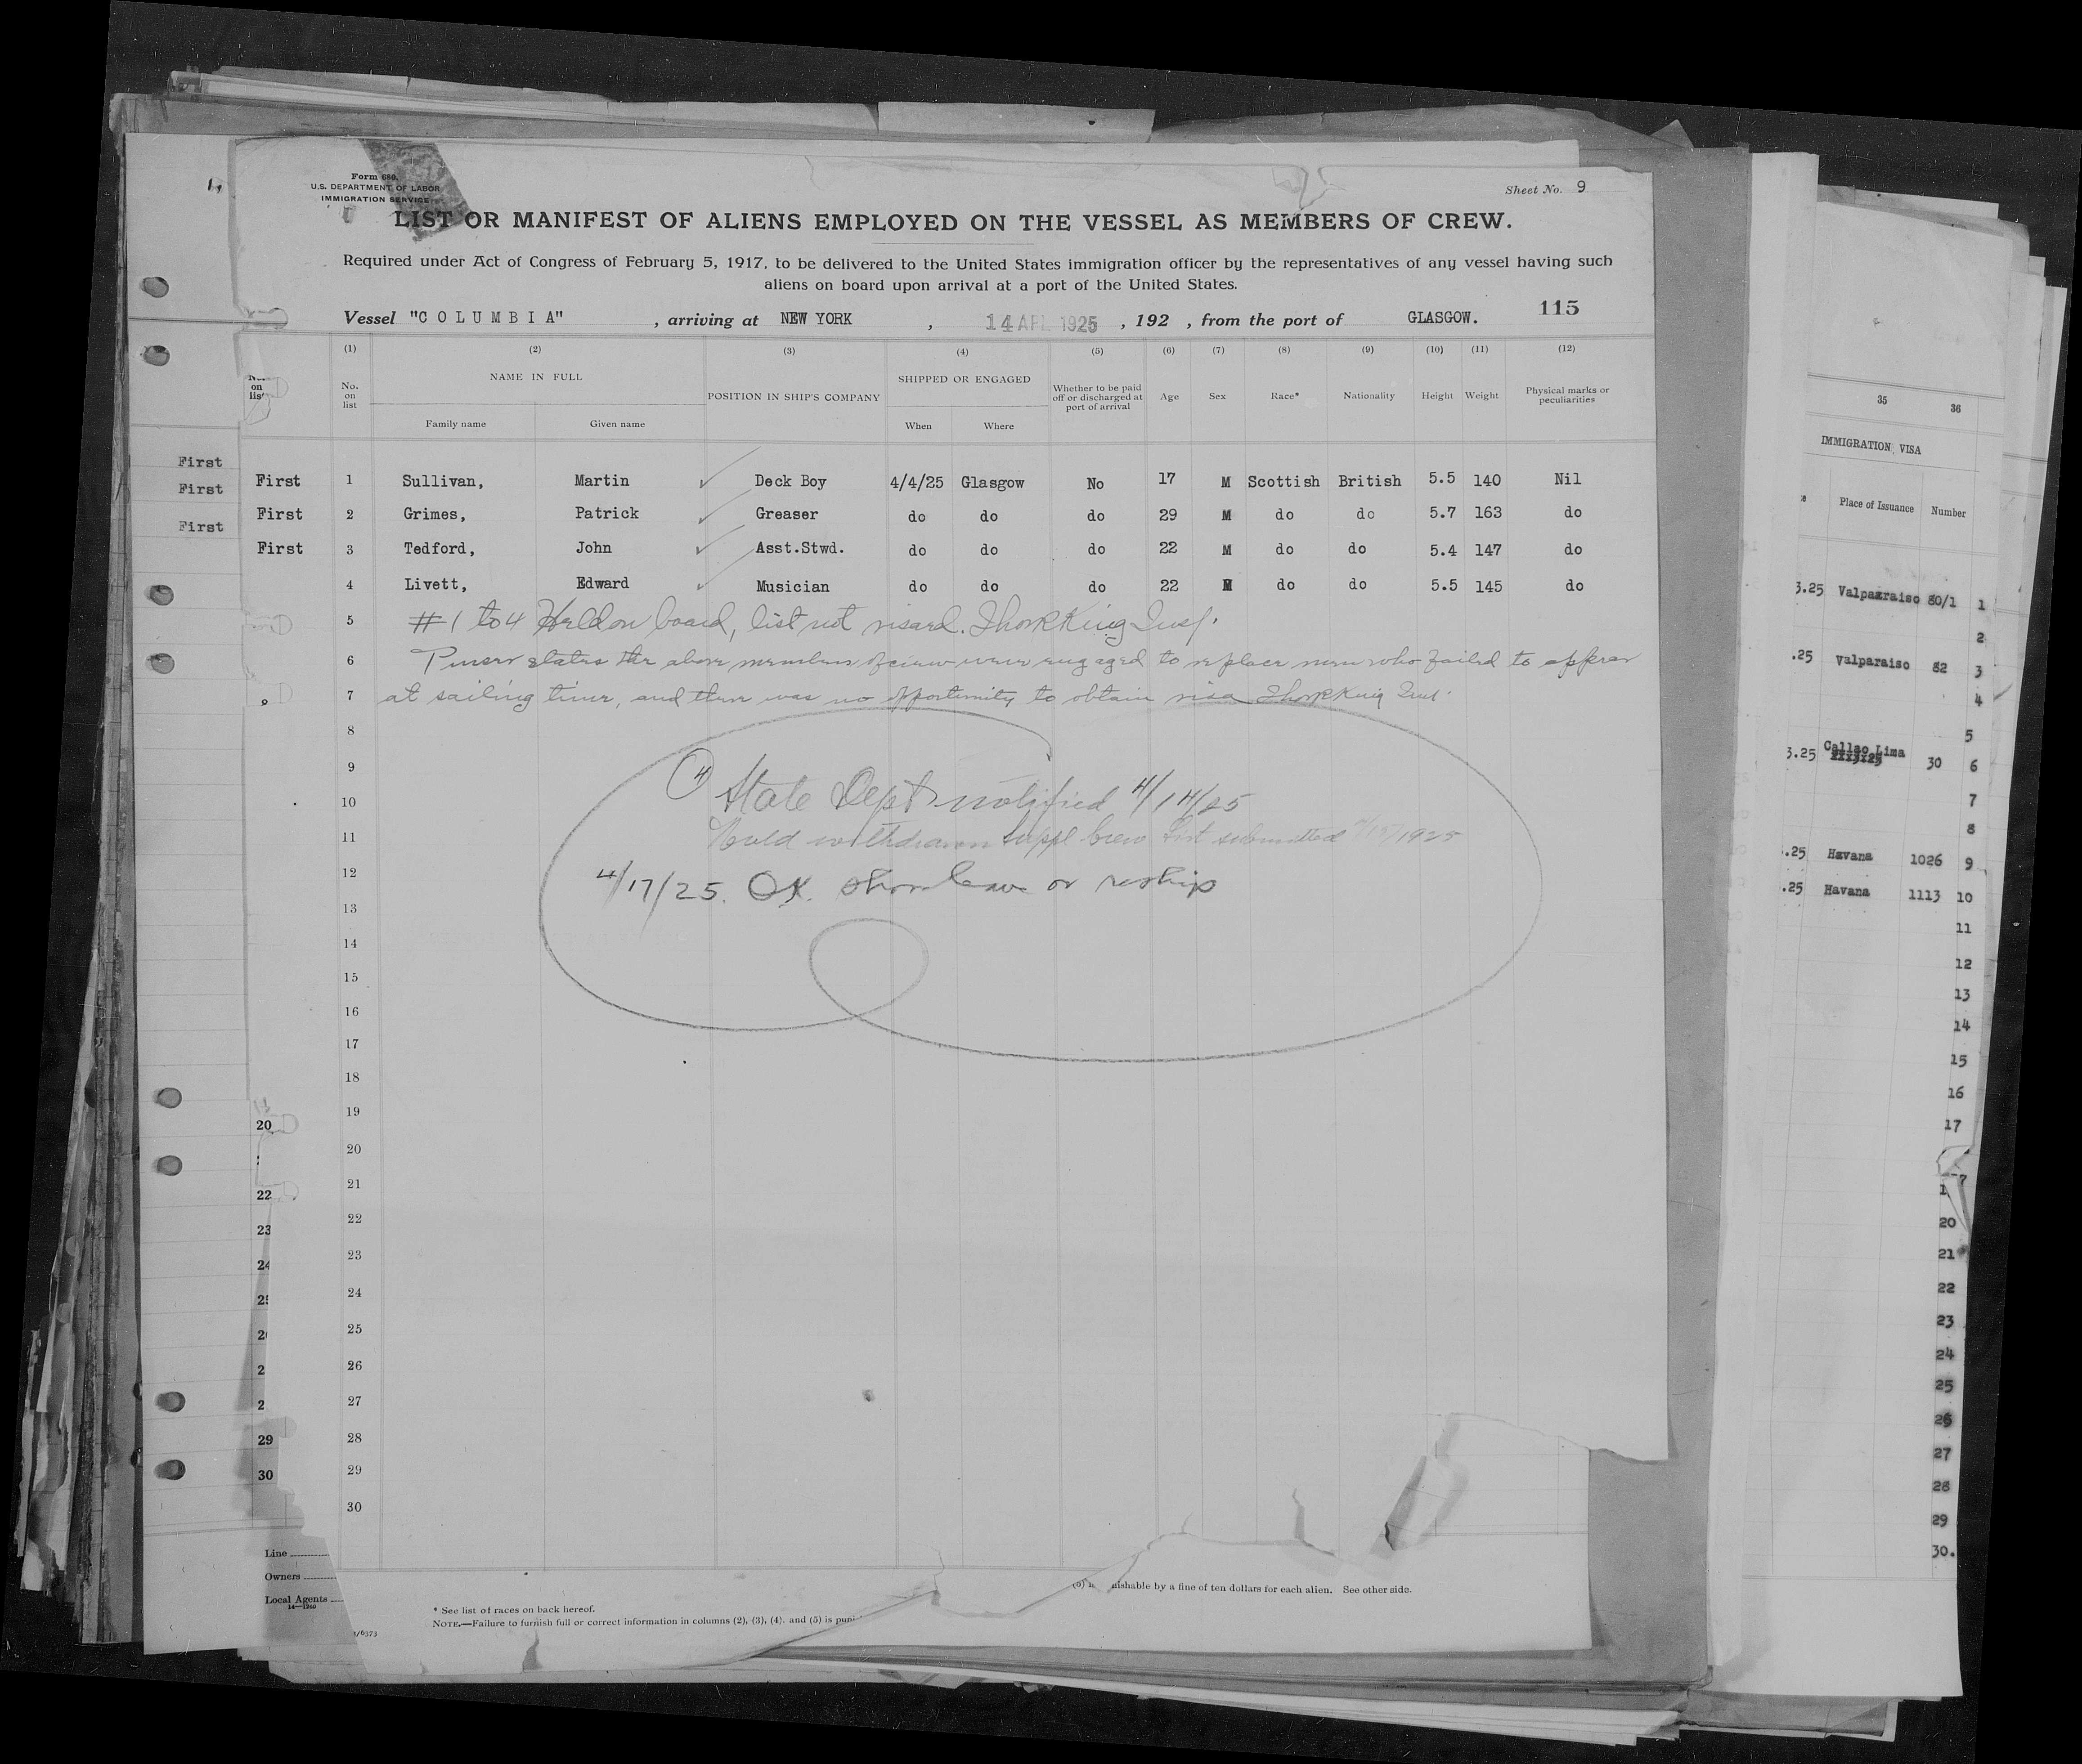 Form 680.
U.S. DEPARTMENT OF LABOR
IMMIGRATION SERVICE
Sheet No. 9
LIST OR MANIFEST OF ALIENS EMPLOYED ON THE VESSEL AS MEMBERS OF CREW.
Required under Act of Congress of February 5, 1917, to be delivered to the United States immigration officer by the representatives of any vessel having such
aliens on board upon arrival at a port of the United States.
115
Vessel "COLUMBIA" , arriving at NEW YORK , 14 APL 1925 , 192 , from the port of GLASGOW.
(1) (2) (3) (4) (5) (6) (7) (8) (9) (10) (11) (12)
No. on list NAME IN FULL POSITION IN SHIP'S COMPANY SHIPPED OR ENGAGED Whether to be paid off or discharged at port of arrival Age Sex Race* Nationality Height Weight Physical marks or peculiarities
Family name Given name When Where
First
First
First
First 1 Sullivan, Martin Deck Boy 4/4/25 Glasgow No 17 M Scottish British 5.5 140 Nil
First 2 Grimes, Patrick Greaser do do do 29 M do do 5.7 163 do
First 3 Tedford, John Asst.Stwd. do do do 22 M do do 5.4 147 do
4 Livett, Edward Musician do do do 22 M do do 5.5 145 do
5 #1 to 4 Held on board, list not visaed. Insp.
6 Purser states the above members of crew were engaged to replace men who failed to appear
7 at sailing time, and there was no opportunity to obtain visa Insp.
8
9
④ State Dept notified 4/14/25
10
11 withdrawn Suppl Crew List submitted 1925
12 4/17/25. OK. shore leave or reship
13
14
15
16
17
18
19
20
21
22
23
24
25
26
27
28
29
30
20
22
23
24
29
30
Line
Owners
Local Agents
14—1240
* See list of races on back hereof.
NOTE.—Failure to furnish full or correct information in columns (2), (3), (4), and (5) is
a fine of ten dollars for each alien. See other side.
35 36
IMMIGRATION VISA
Place of Issuance Number
3.25 Valparaiso 80/1 1
2
.25 Valparaiso 82 3
4
5
3.25 Callao Lima 30 6
7
8
.25 Havana 1026 9
.25 Havana 1113 10
11
12
13
14
15
16
17
20
21
22
23
24
25
26
27
28
29
30.